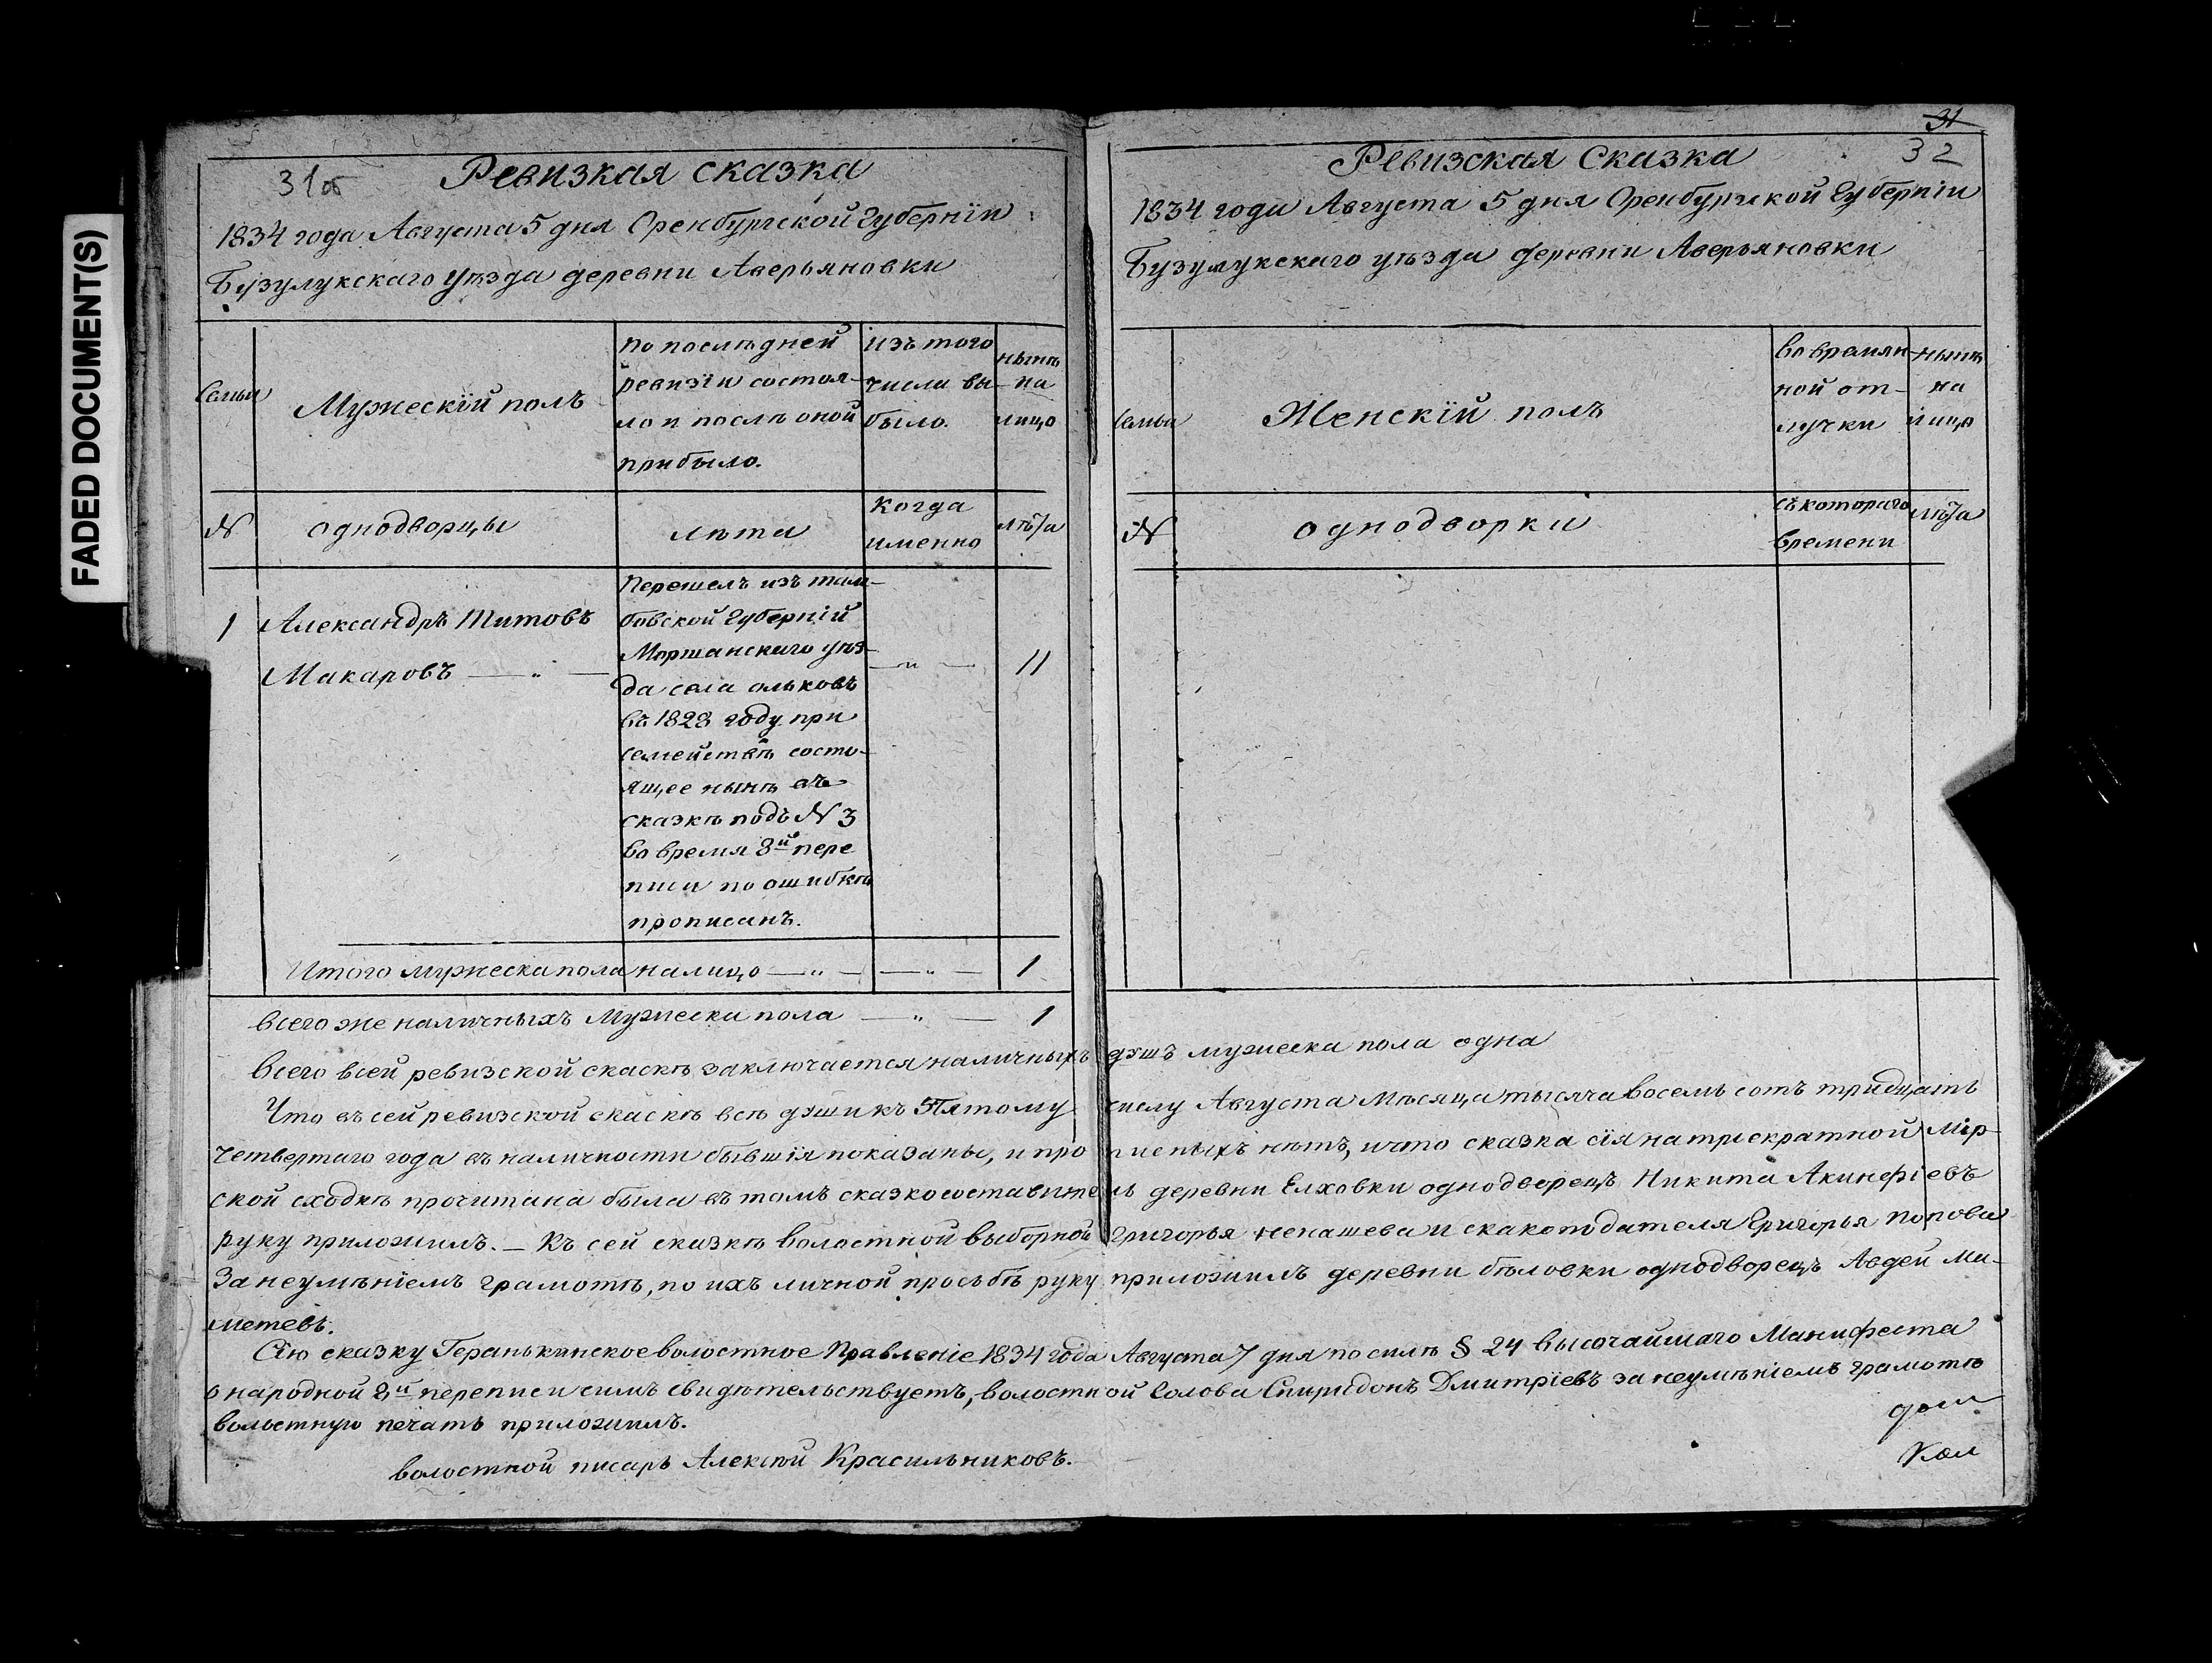 FADED DOCUMENT(S)
31об
Ревизкая сказка
1834 года Августа 5 дня Оренбургской Губернїи
Бузулукскаго уѣзда деревни Аверьяновки
Семьи
Мужескїй полъ
по послѣдней
ревизїи состоя-
ло и послѣ оной
прибыло.
Изъ того
числа вы-
было.
нынѣ
на
лицо
N
однодворцы
лѣта
когда
именно
лѣта
1
Александръ Титовъ
Макаровъ — „ —
Перешелъ изъ там-
бовской Губернїй
Моршанскаго уѣз-
да села ольховъ
въ 1828 году при
семействѣ состо-
ящее нынѣ въ
сказкѣ подъ N 3
во время 8й пере
писи по ошибкѣ
прописанъ.
— „ —
11
Итого мужеска пола налицо — „ — — „ — 1
всего же наличныхъ Мужеска пола — „ — 1
31
32
Ревизская Сказка
1834 года Августа 5 дня Оренбургской Губернїи
Бузулукскаго уѣзда деревни Аверьяновки
Семьи
Женскїй полъ
во времян-
ной от-
лучки
нынѣ
на
лицо
N
однодворки
съ котораго
времени
лѣта
Всего всей ревизской скаскѣ заключается наличныхъ душъ мужеска пола одна
Что въ сей ревизской скаскѣ всѣ души къ 5 Пятому числу Августа Мѣсяца тысяча восемь сотъ тридцать
четвертаго года въ наличности бывшїя показаны, и прописныхъ нѣтъ, и что сказка сїя на трїскратной мїр-
ской сходкѣ прочитана была въ томъ сказкосоставитель деревни Елховки однодворецъ Никита Акинфїевъ
руку приложилъ. — Къ сей сказкѣ волостной выборной Григорья Ненашева и скакоподателя Григорья Попова
За неумѣнїемъ грамотѣ, по ихъ личной просьбѣ руку приложилъ деревни бѣловки однодворецъ Авдей Ма-
метевъ.
Сїю сказку Геранькинское волостное Правленїе 1834 года Августа 7 дня по силѣ § 24 высочайшаго Манифеста
о народной 8й переписи симъ свидѣтельствуетъ, волостной Голова Спиридонъ Дмитрїевъ за неумѣнїемъ грамотѣ
волостную печать приложилъ.
волостной писарь Алексѣй Красильниковъ.